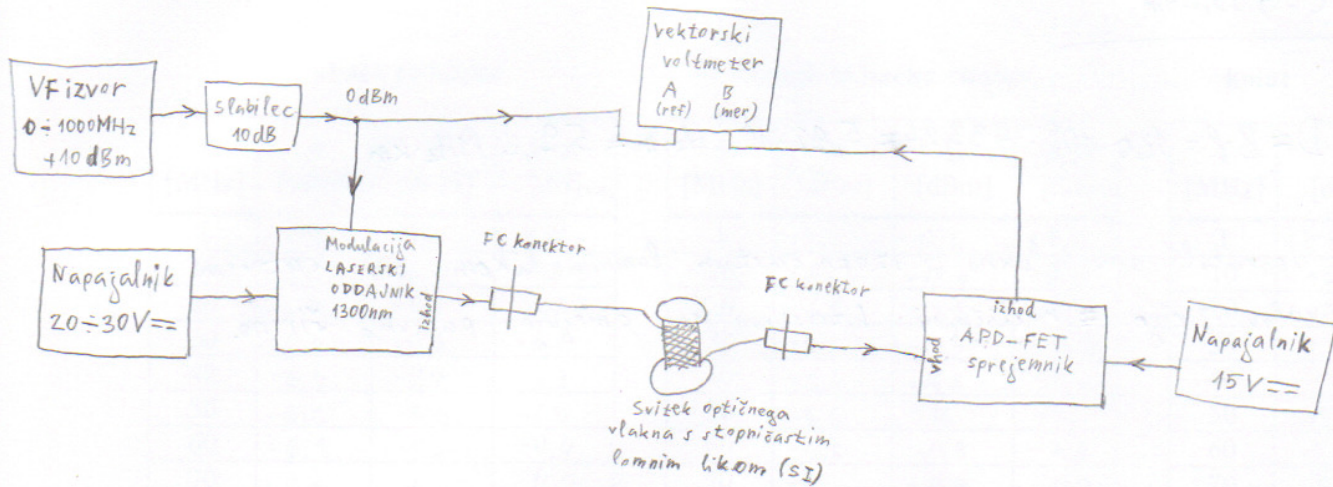 VF izvor
0÷1000MHz
+10 dBm
slabilec
10dB
0 dBm
vektorski
voltmeter
A B
(ref) (mer)
Napajalnik
20÷30V
Modulacija
LASERSKI
ODDAJNIK
1300nm
izhod
FC konektor
Svitek optičnega
vlakna s stopničastim
lomnim likom (SI)
FC konektor
izhod
vhod
APD-FET
sprejemnik
Napajalnik
15V